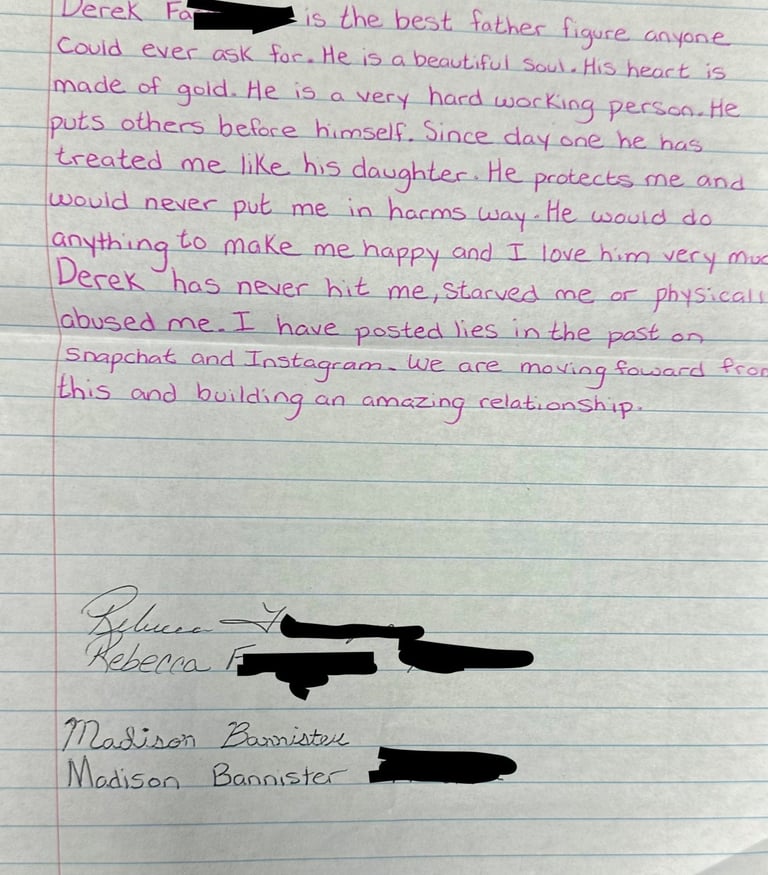 Derek Fa is the best father figure anyone
could ever ask for. He is a beautiful soul. His heart is
made of gold. He is a very hard working person. He
puts others before himself. Since day one he has
treated me like his daughter. He protects me and
would never put me in harms way. He would do
anything to make me happy and I love him very muc
Derek has never hit me, starved me or physicall
abused me. I have posted lies in the past on
snapchat and Instagram. We are moving foward from
this and building an amazing relationship.
Rebecca F
Rebecca F
Madison Bannister
Madison Bannister